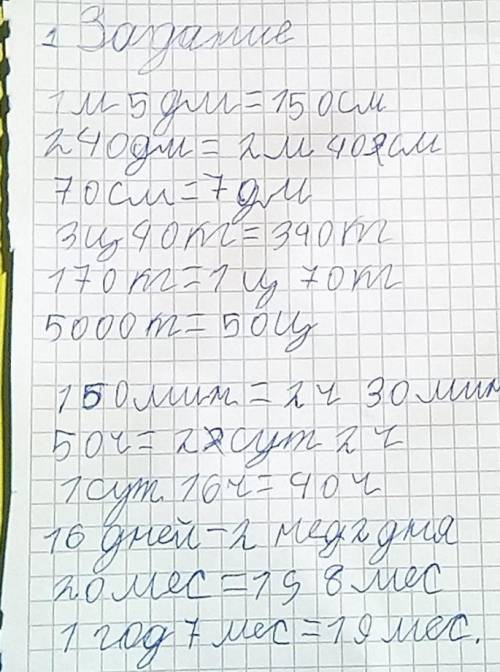 1 Задание
1м 5дм=150см
240дм=2м 40см
70см=7дм
3ц 40кг=340кг
170кг=1ц 70кг
5000т=50ц
150мин=2ч 30мин
50ч=2сут 2ч
1сут 16ч=40ч
16 дней-2 нед 2 дня
20мес=1г 8мес
1 год 7 мес=19мес.